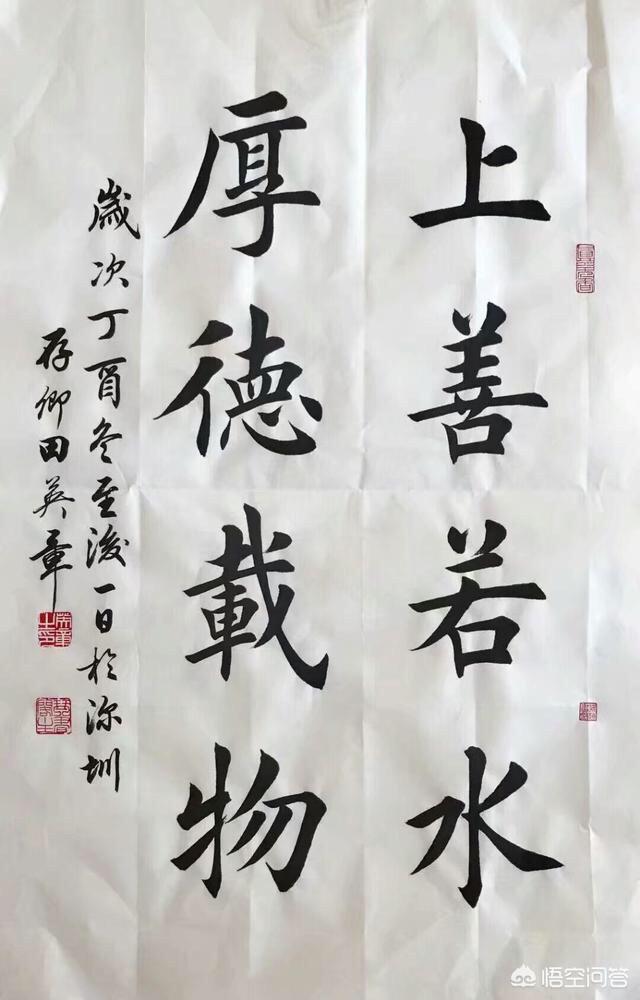 上善若水
厚德載物
歲次丁酉冬至後一日於深圳
存卿田英章
悟空问答